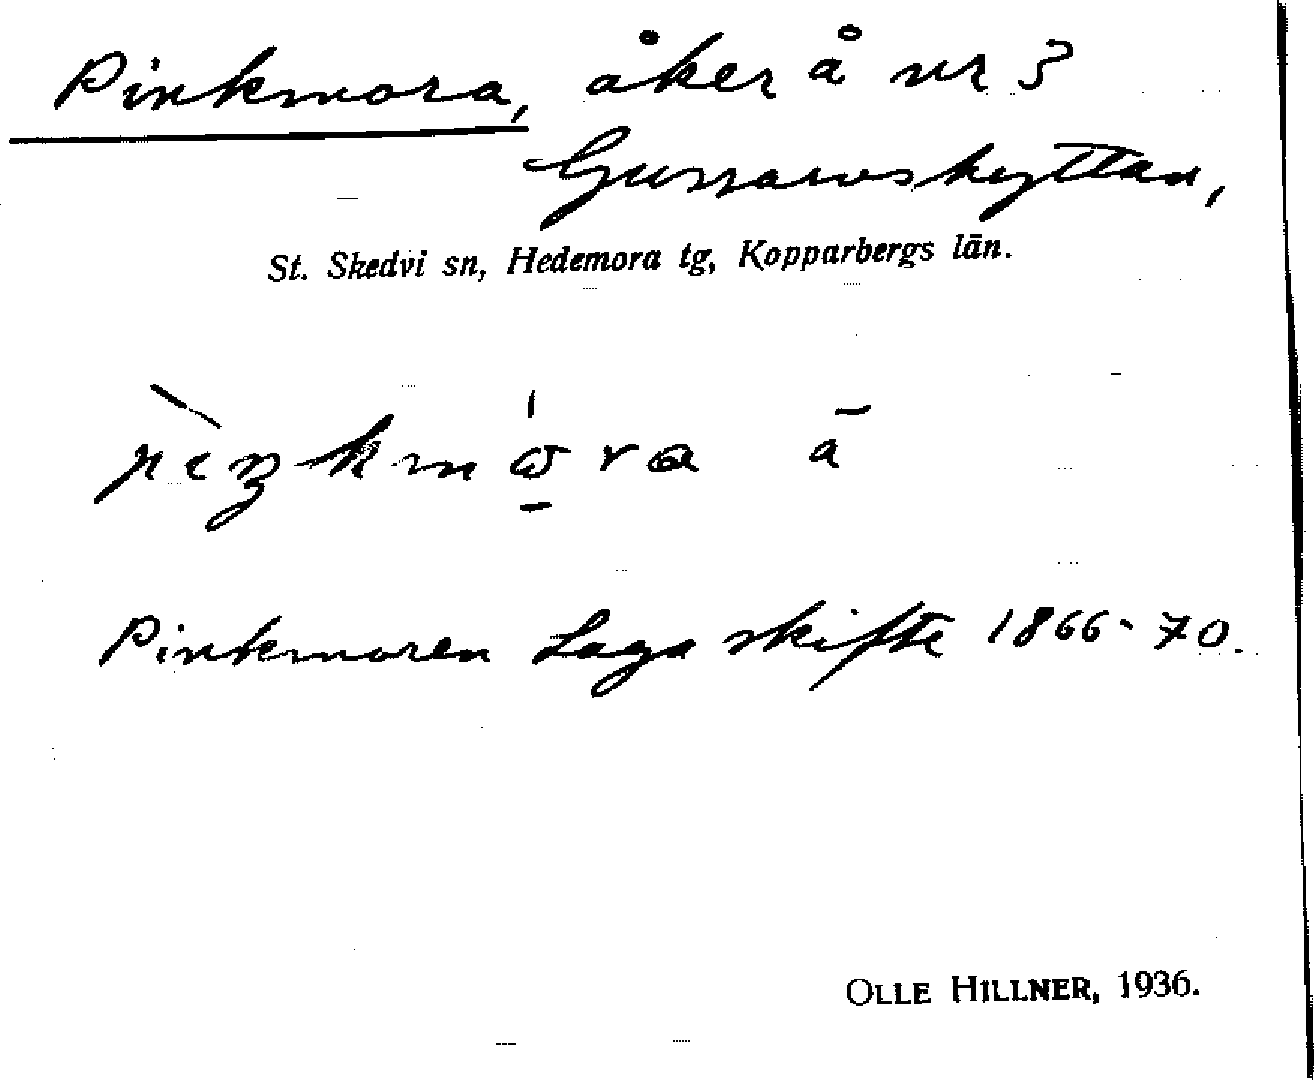 Pinkmora, åker å nr 3
Gussarvshyttan,
St. Skedvi sn, Hedemora tg, Kopparbergs län.
Pinkmoren Laga skifte 1866-70.
OLLE HILLNER, 1936.